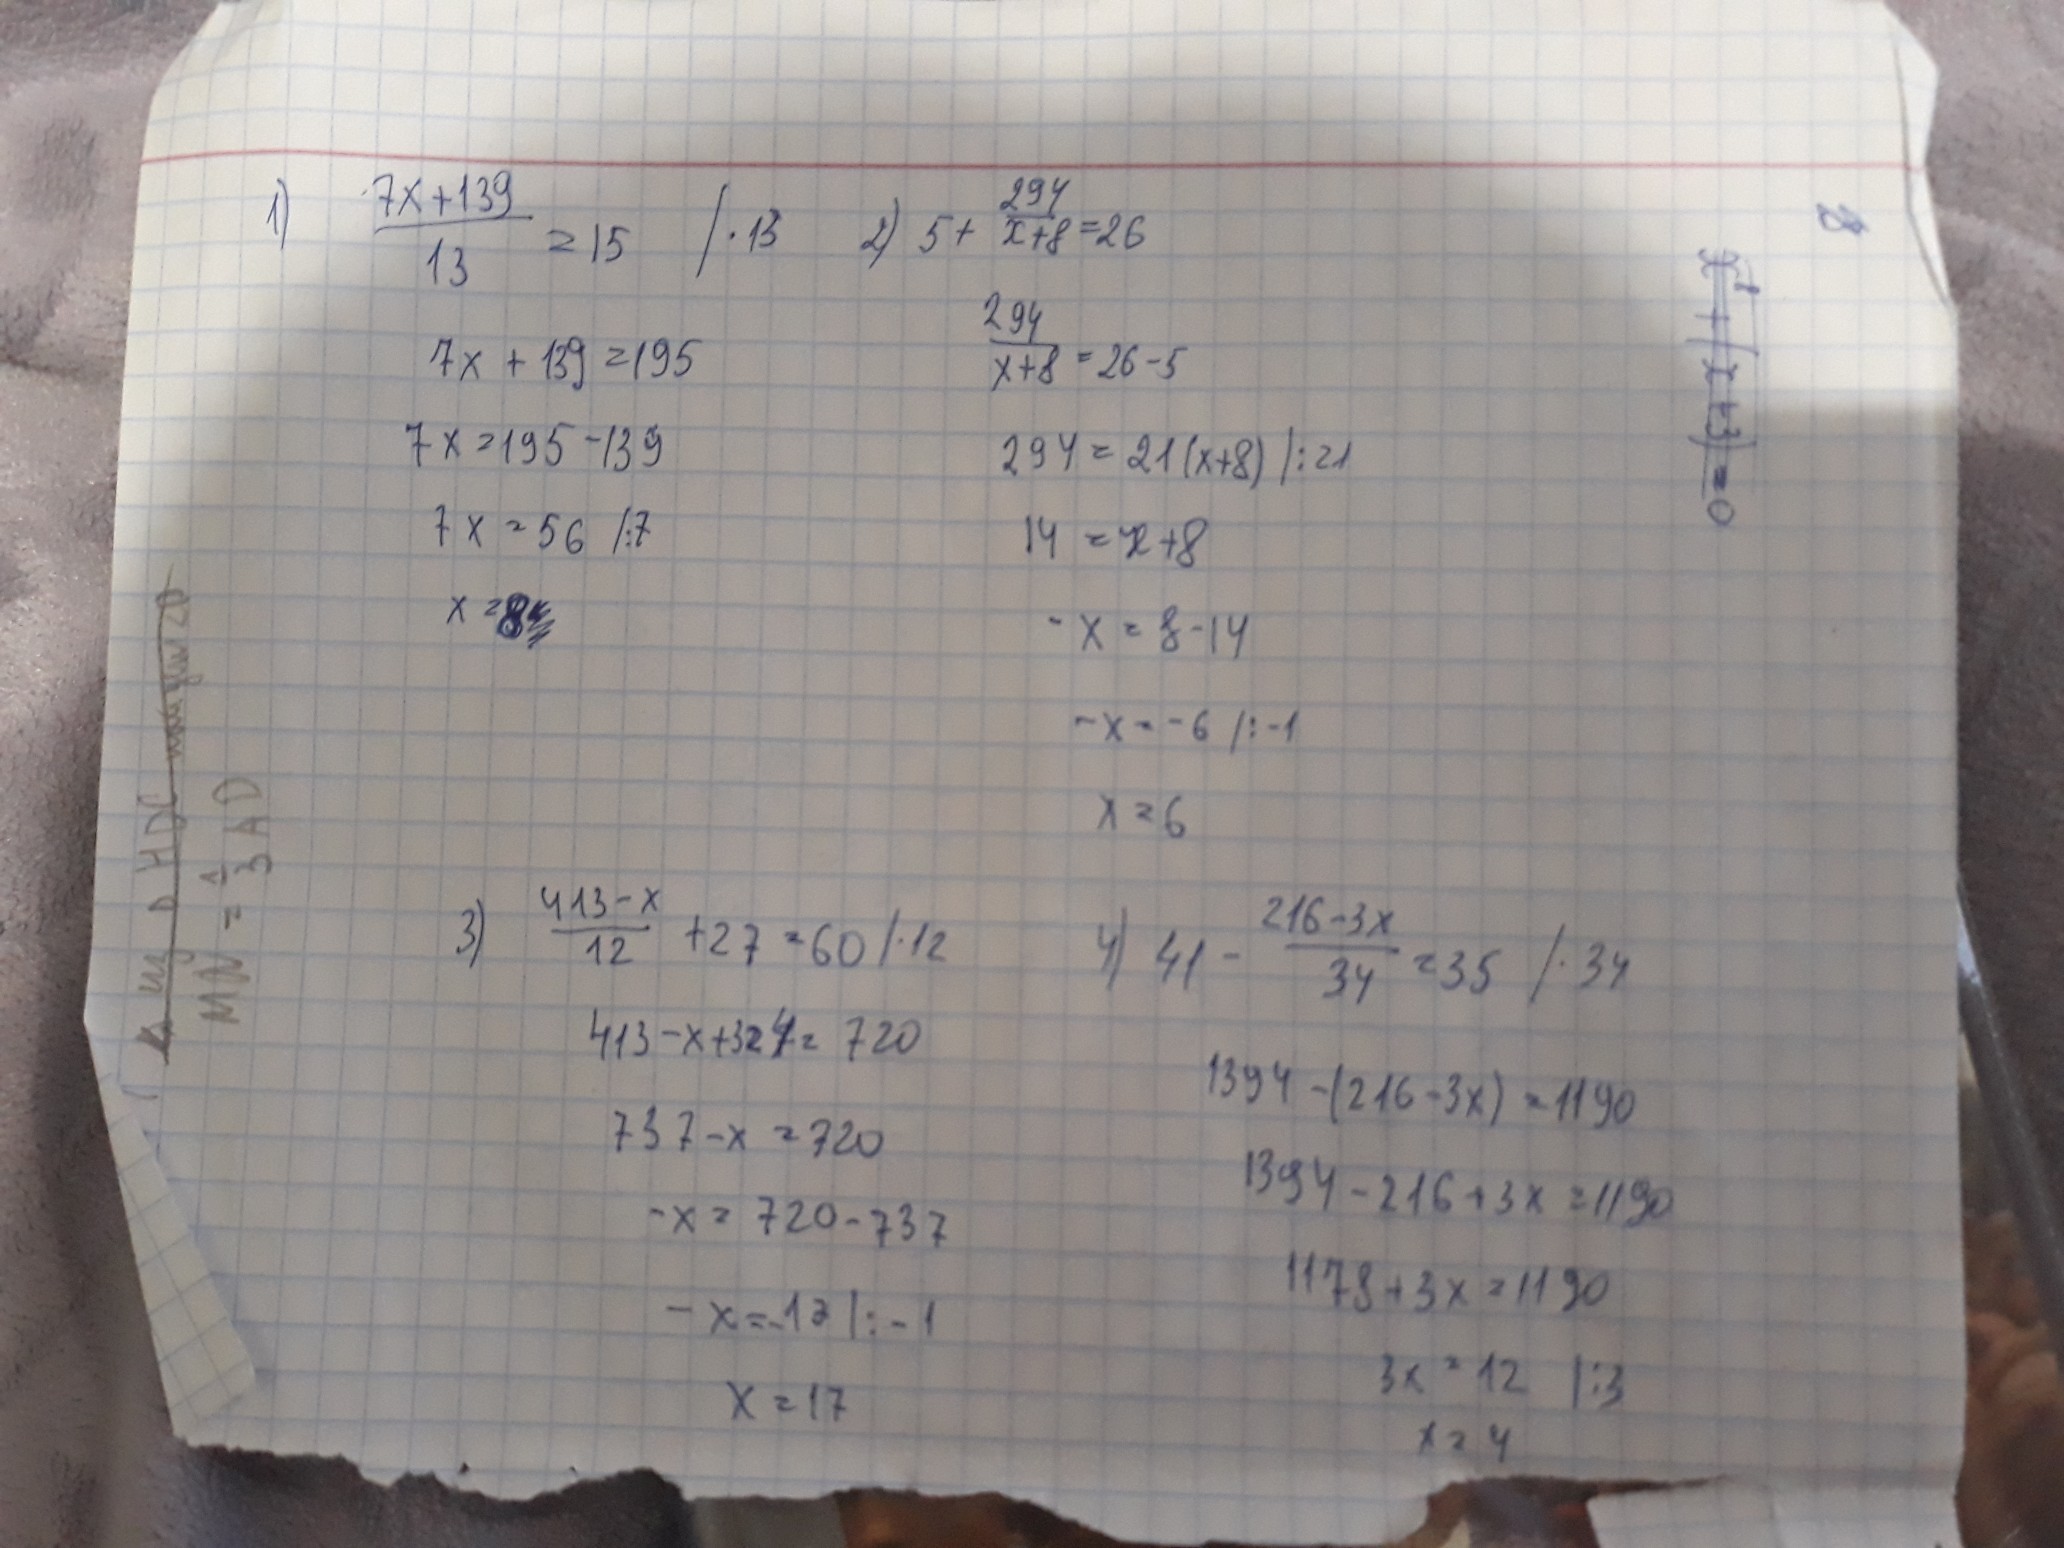 1) (7x+139)/13 = 15 /·13
7x + 139 = 195
7x = 195 - 139
7x = 56 /:7
x = 8
2) 5 + 294/(x+8) = 26
294/(x+8) = 26 - 5
294 = 21(x+8) /:21
14 = x + 8
-x = 8 - 14
-x = -6 /:-1
x = 6
3) (413-x)/12 + 27 = 60 /·12
413 - x + 324 = 720
737 - x = 720
-x = 720 - 737
-x = -17 /:-1
x = 17
4) 41 - (216-3x)/34 = 35 /·34
1394 - (216 - 3x) = 1190
1394 - 216 + 3x = 1190
1178 + 3x = 1190
3x = 12 /:3
x = 4
из Δ HDC
MN = 1/3 AD